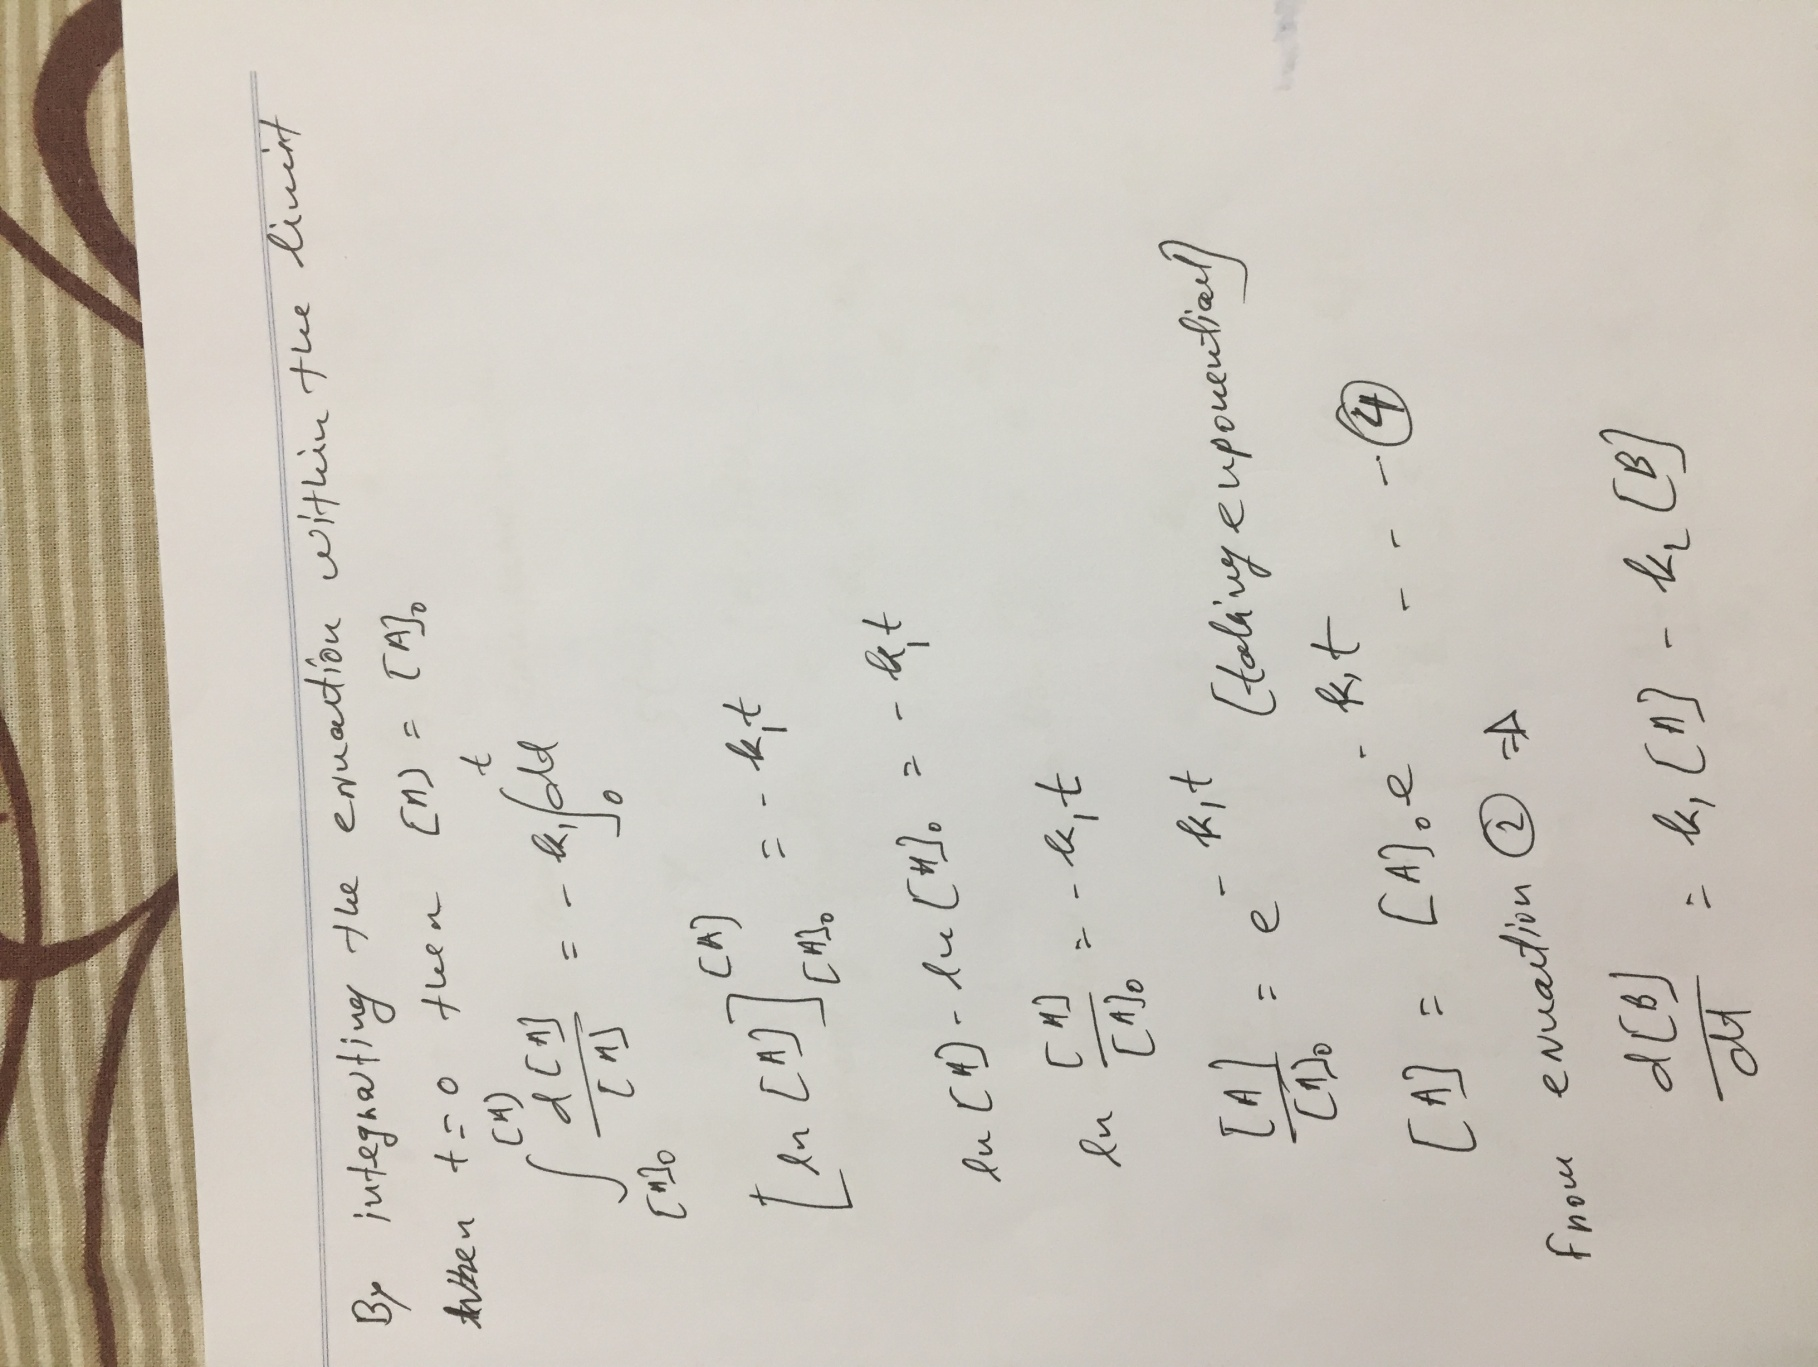 By integrating the equation within the limit
when t=0 then [A] = [A]₀
∫_{[A]₀}^{[A]} d[A]/[A] = - k₁ ∫₀^t dt
[ln [A]]_{[A]₀}^{[A]} = - k₁t
ln [A] - ln [A]₀ = - k₁t
ln [A]/[A]₀ = - k₁t
[A]/[A]₀ = e^{- k₁t} [taking exponential]
[A] = [A]₀ e^{- k₁t} - - - ④
From equation ② ⇒
d[B]/dt = k₁ [A] - k₂ [B]